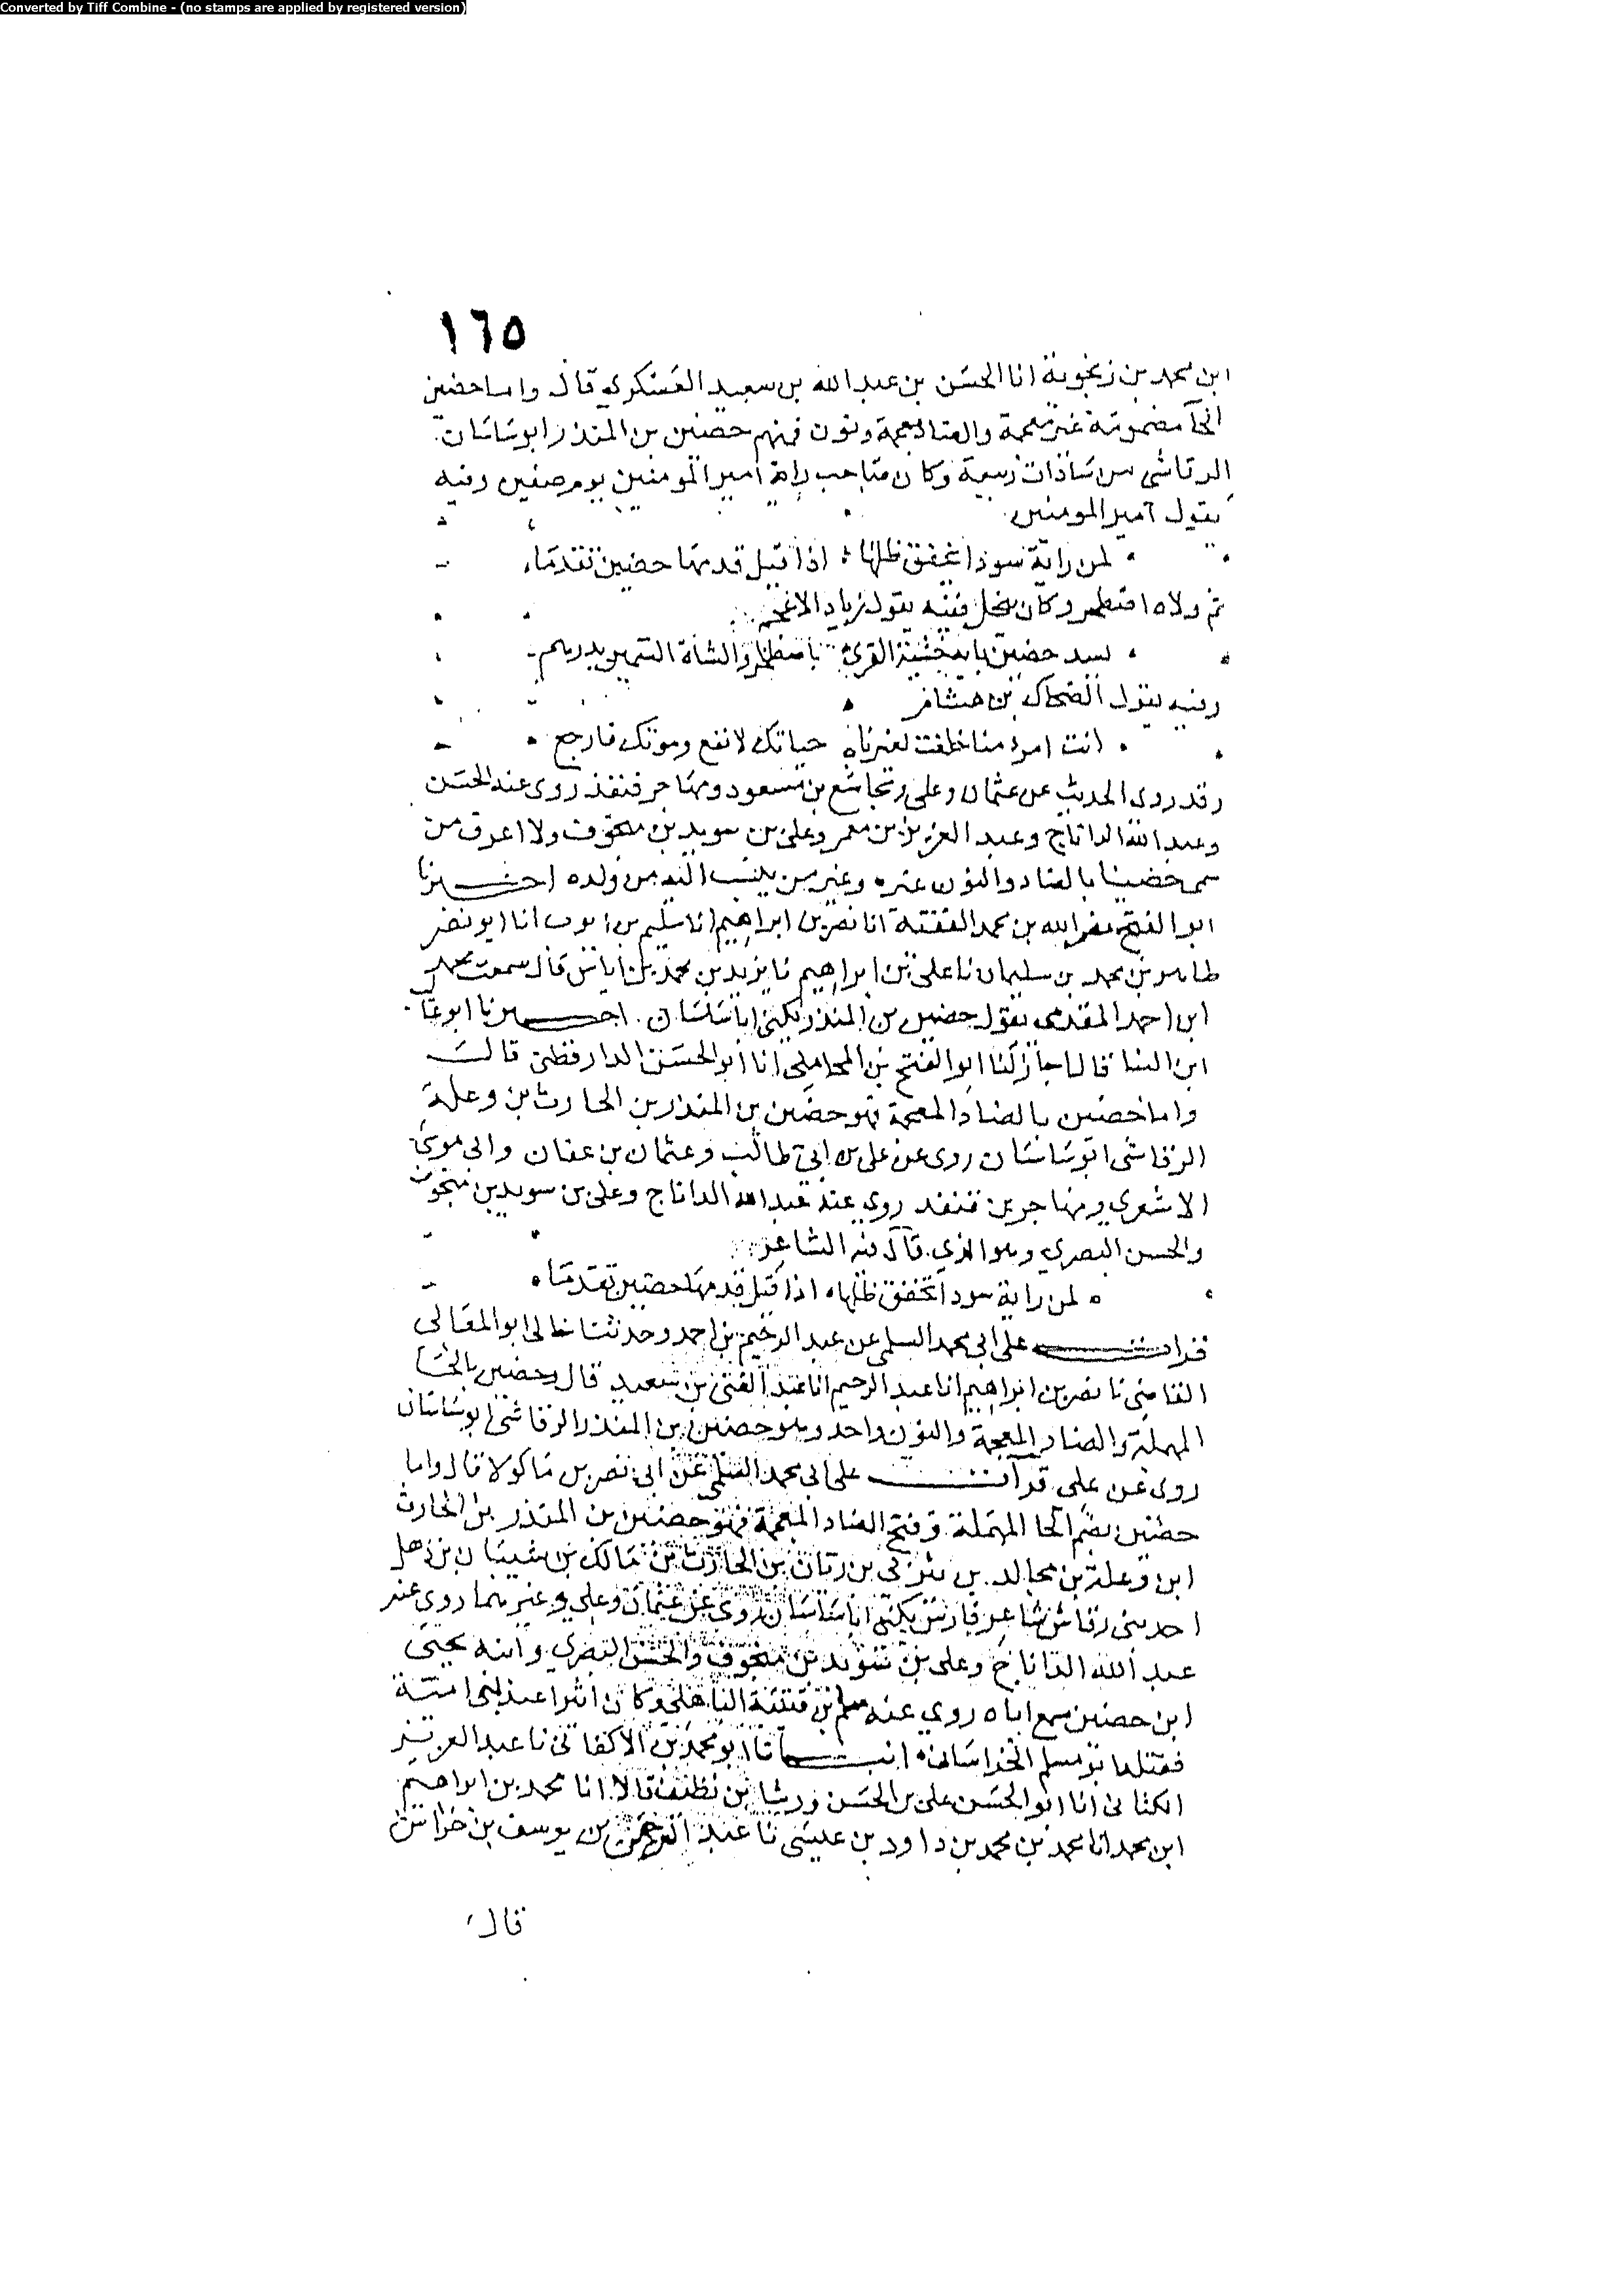 Converted by Tiff Combine - (no stamps are applied by registered version)
١٦٥
ابن محمد بن زنجوية انا الحسن بن عبد الله بن سعيد العسكري قال واما حضين
الحآ مضمومة غير معجمة والضاد معجمة ونون فمنهم حضين بن المنذر ابو ساسان
الرقاشي من سادات ربيعة وكان صاحب راية امير المومنين يوم صفين وفيه
يقول امير المومنين
لمن راية سودا يخفق ظلها اذا قيل قدمها حضين تقدما
ثم ولاه اصطخر وكان يبخل وفيه يقول زياد الاعجم
يسد حضين بابه خشية القرى باصطخر والشاة السمين بدرهم
وفيه يقول الضحاك بن هشام
انت امرؤ منا خلقت لغيرنا حياتك لا نفع وموتك فاجع
وقد روى الحديث عن عثمان وعلي ومجاشع بن مسعود ومهاجر قنفذ روى عنه الحسن
وعبد الله الداناج وعبد العزيز بن معمر وعلي بن سويد بن منجوف ولا اعرف من
سمى حضينا بالضاد والنون غيره وغير من ينسب اليه من ولده اخبرنا
ابو الفتح نصر الله بن محمد الفقيه انا نصر بن ابراهيم انا سليم بن ايوب انا ابو نصر
طاهر بن محمد بن سليمان نا علي بن ابراهيم نا يزيد بن محمد بن اياس قال سمعت محمد
ابن احمد المقدمي يقول حضين بن المنذر يكنى ابا ساسان. اخبرنا ابو غا
ابن البنا قال اجاز لنا ابو الفتح بن المحاملي انا ابو الحسن الدارقطني قال
واما حضين بالضاد المعجمة فهو حضين بن المنذر بن الحارث بن وعلة
الرقاشي ابو ساسان روى عن علي بن ابي طالب وعثمان بن عفان وابي موسى
الاشعري ومهاجر بن قنفد روي عنه عبد الله الداناج وعلي بن سويد بن منجوف
والحسن البصري وهو الذي قال فيه الشاعر
لمن راية سودا يخفق ظلها اذا قيل قدمها حضين تقدما
قرات على ابي محمد السلمي عن عبد الرحيم بن احمد وحدثنا خالي ابو المعالي
القاضي نا نصر بن ابراهيم انا عبد الرحيم انا عبد الغني بن سعيد قال وحضين بالحا
المهملة والضاد المعجمة والنون واحد وهو حضين بن المنذر الرقاشي ابو ساسان
روى عن علي قرات على ابي محمد السلمي عن ابي نصر بن ماكولا قال واما
حضين بضم الحا المهملة وفتح الضاد المعجمة فهو حضين بن المنذر بن الحارث
ابن وعلة بن مجالد بن يثربي بن ريان بن الحارث بن مالك بن شيبان بن ذهل
احد بني رقاش شاعر فارس يكنى ابا ساسان روى عن عثمان وعلي وغيرهما روى عنه
عبد الله الداناج وعلي بن سويد بن منجوف والحسن البصري وابنه يحيى
ابن حضين سمع اباه روي عنه سلم بن قتيبة الباهلي وكان اثيرا عند بني امية
فقتله ابو مسلم الخراساني انبانا ابو محمد بن الاكفاني نا عبد العزيز
الكتاني انا ابو الحسن علي بن الحسن ورشا بن نظيف قالا انا محمد بن ابراهيم
ابن محمد انا محمد بن محمد بن داود بن عيسى نا عبد الرحمن بن يوسف بن خراش
قال